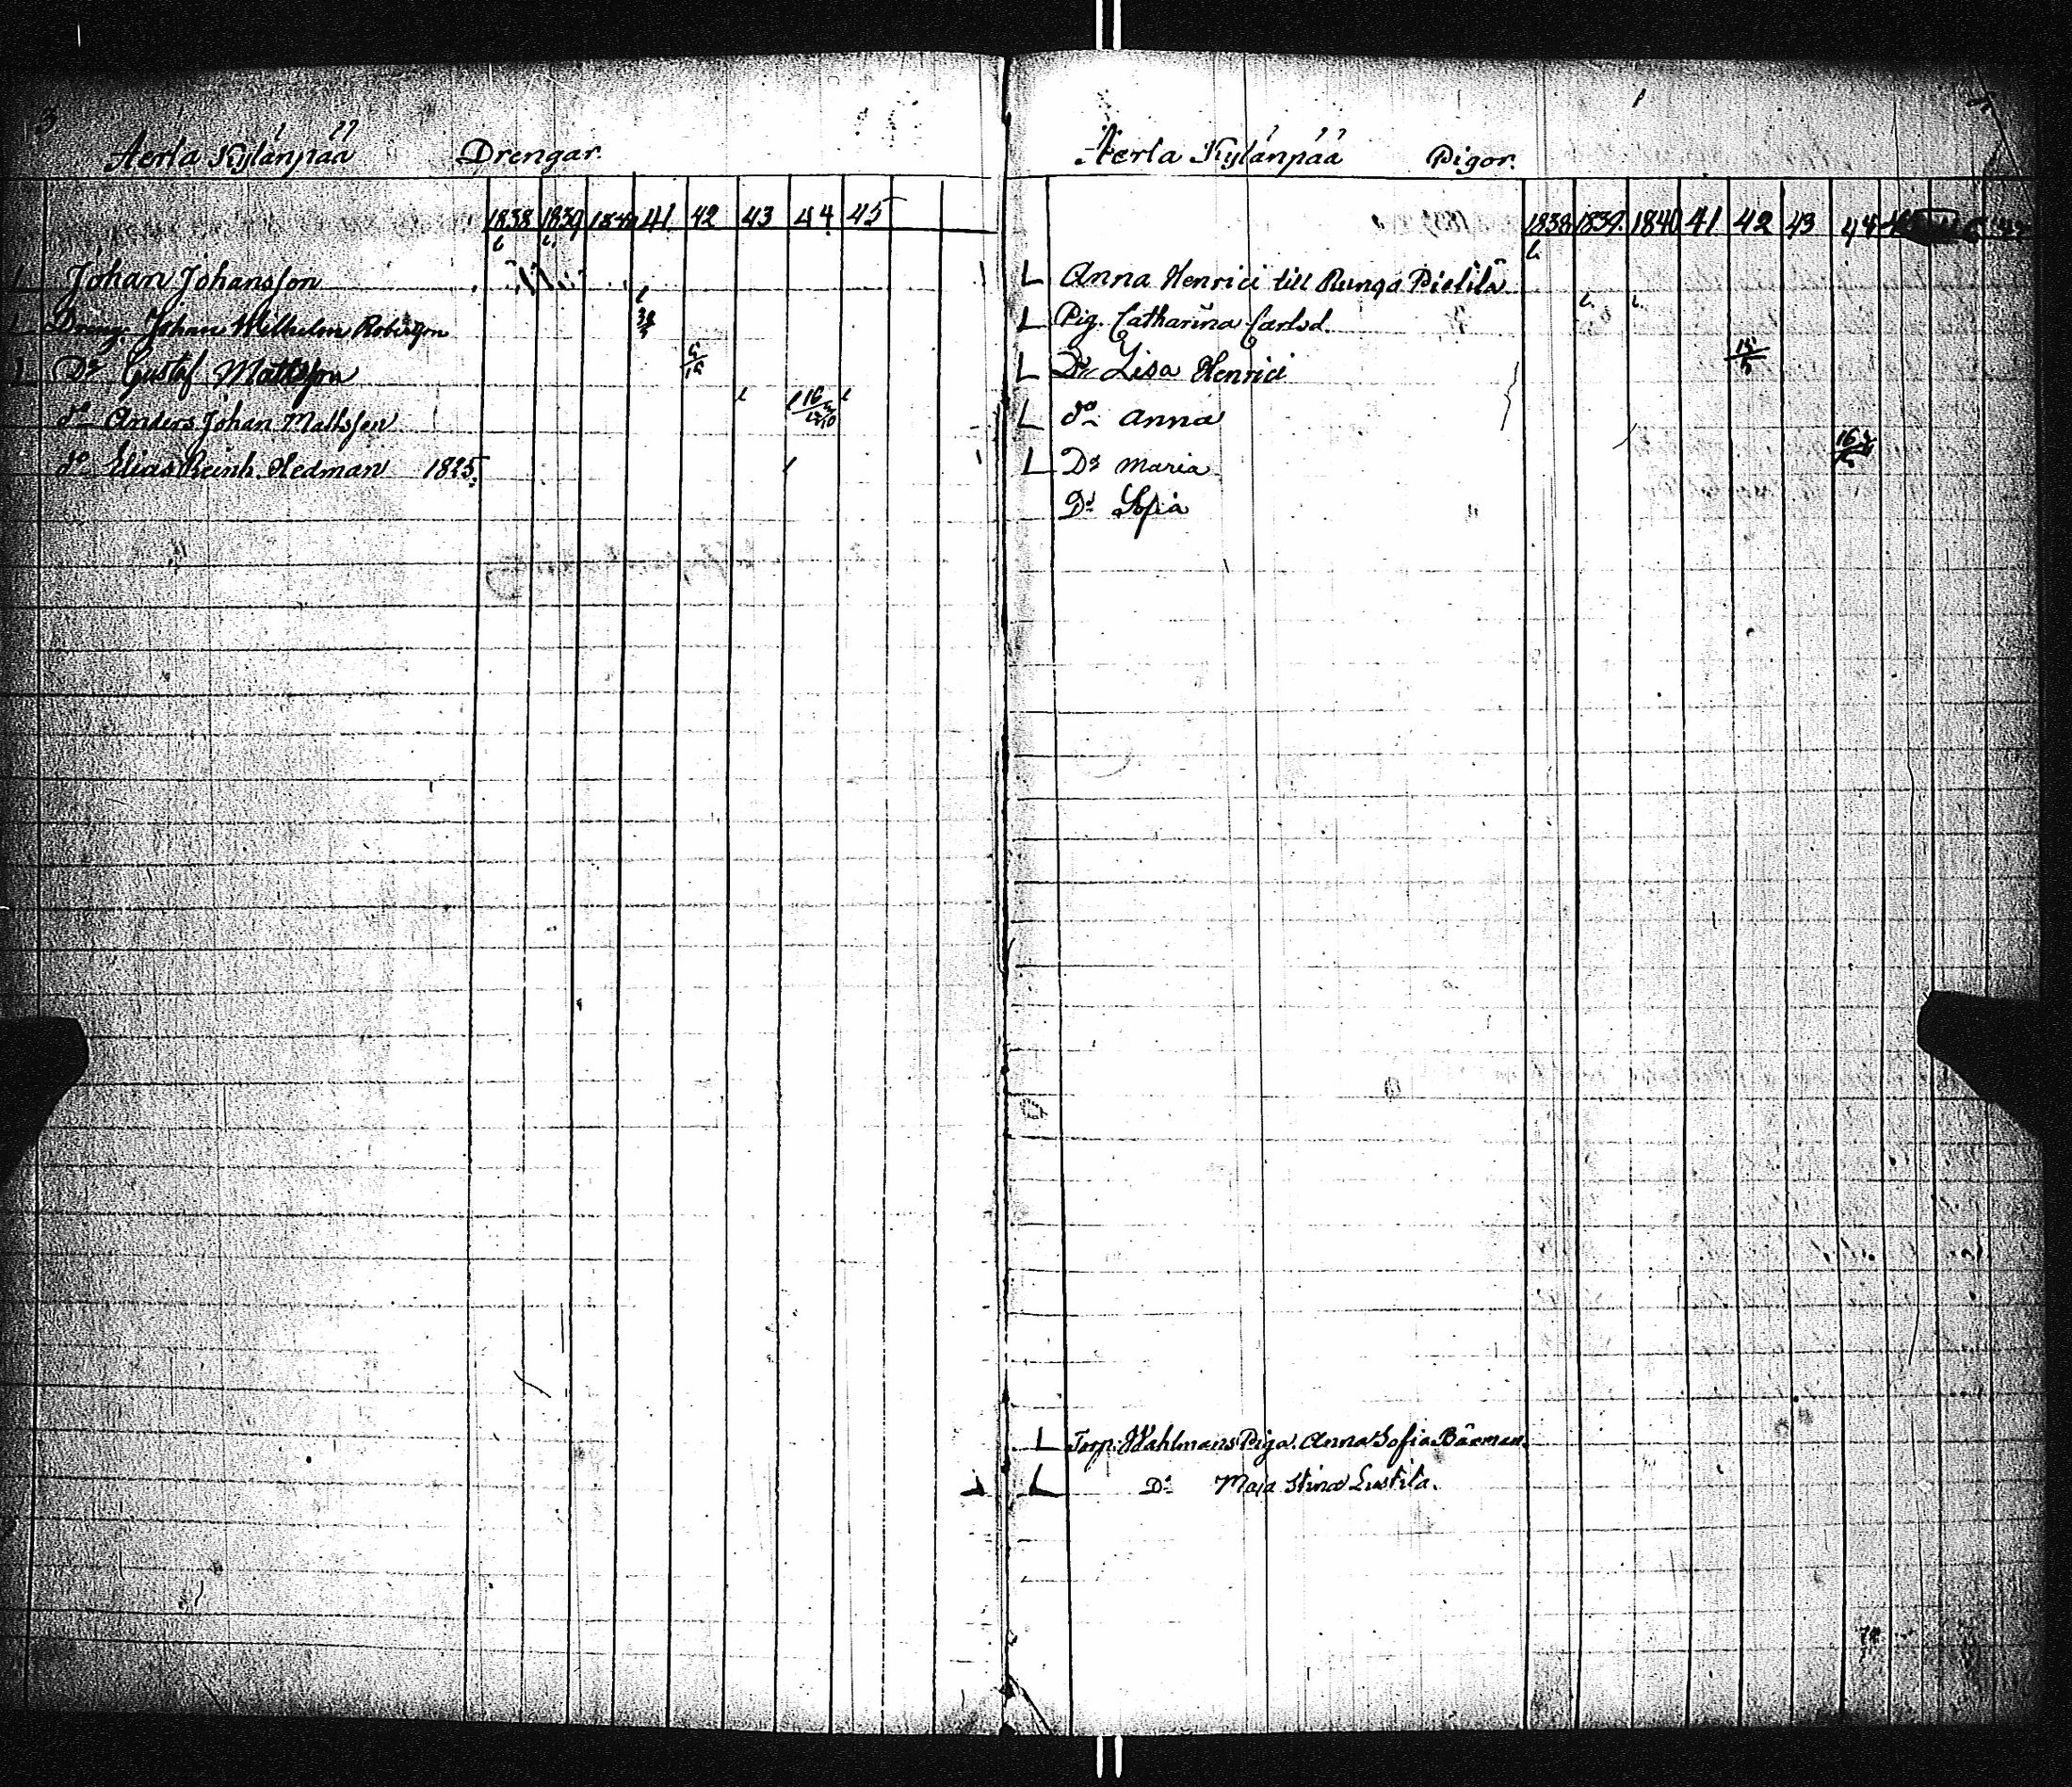 3
Aerla Kylänpää Drengar.
1838 1839 1840 41 42 43 44 45
Johan Johansson
Dreng. Johan Wilhelm Robertson
Do Gustaf Mattsson
do Anders Johan Mattsson
do Elias Reinh. Hedman 1825.
Aerla Kylänpää Pigor.
1838 1839. 1840 41 42 43 44
L Anna Henrici till Runga Pietilä
L Pig. Catharina Carlsd.
L Do Lisa Henrici
L do Anna
L Do Maria
Do Sofia
L Torp. Wahlmans Piga. Anna Sofia Bärman.
L Do Maja Stina Lustila.